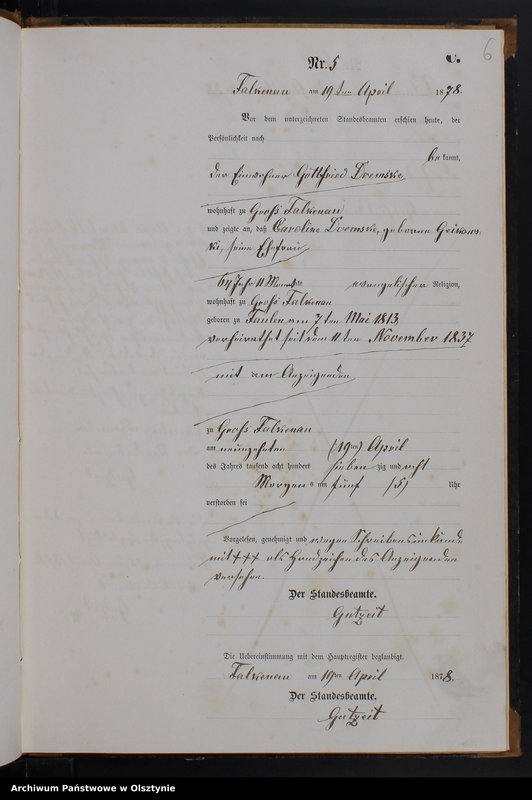 6
Nr. 5
C.
Falkenau am 19ten April 1878.
Vor dem unterzeichneten Standesbeamten erschien heute, der
Persönlichkeit nach
be kannt,
der Einwohner Gottfried Dremske,
wohnhaft zu Groß Falkenau
und zeigte an, daß Caroline Dremske, geborene
seine Ehefrau
64 Jahr 11 Monate evangelischer Religion,
wohnhaft zu Groß Falkenau
geboren zu Faulen am 7ten Mai 1813,
verheirathet seit dem 11ten November 1837
mit dem Anzeigenden
zu Groß Falkenau
am neunzehnten (19ten) April
des Jahres tausend acht hundert sieben zig und acht
Morgens um fünf (5) Uhr
verstorben sei
Vorgelesen, genehmigt und wegen Schreibensunkunde
mit +++ als Handzeichen des Anzeigenden
versehen.
Der Standesbeamte.
Gutzeit
Die Uebereinstimmung mit dem Hauptregister beglaubigt.
Falkenau am 19ten April 1878.
Der Standesbeamte.
Gutzeit
Archiwum Państwowe w Olsztynie